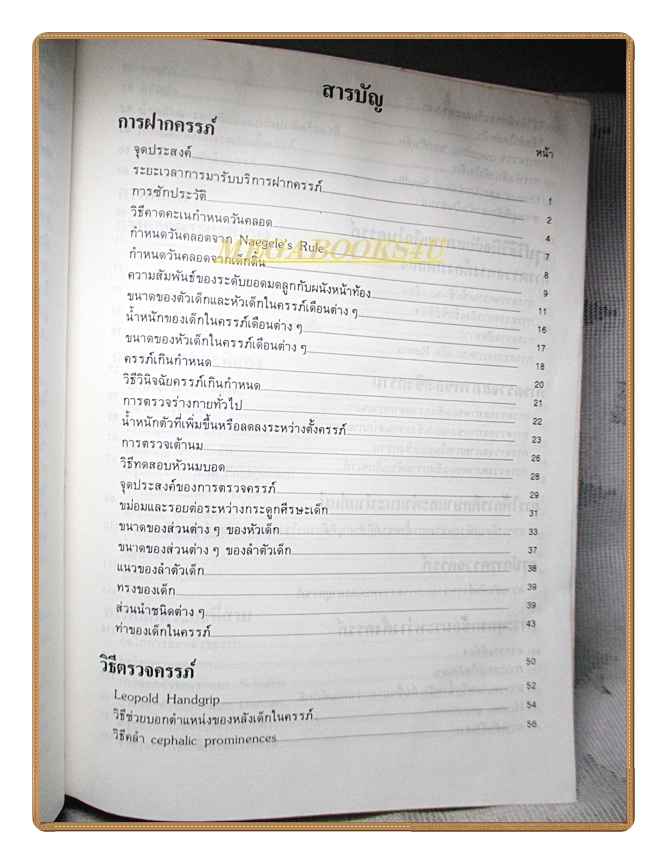 สารบัญ
หน้า
การฝากครรภ์
จุดประสงค์ 1
ระยะเวลาการมารับบริการฝากครรภ์ 2
การซักประวัติ 4
วิธีคาดคะเนกำหนดวันคลอด 7
กำหนดวันคลอดจาก Naegele's Rule 8
กำหนดคลอดจากเด็กดิ้น 9
ความสัมพันธ์ของระดับยอดมดลูกกับผนังหน้าท้อง 11
ขนาดของตัวเด็กและหัวเด็กในครรภ์เดือนต่าง ๆ 16
น้ำหนักของเด็กในครรภ์เดือนต่าง ๆ 17
ขนาดของหัวเด็กในครรภ์เดือนต่าง ๆ 18
ครรภ์เกินกำหนด 20
วิธีวินิจฉัยครรภ์เกินกำหนด 21
การตรวจร่างกายทั่วไป 22
น้ำหนักตัวที่เพิ่มขึ้นหรือลดลงระหว่างตั้งครรภ์ 23
การตรวจเต้านม 26
วิธีทดสอบหัวนมบอด 28
จุดประสงค์ของการตรวจครรภ์ 29
ขม่อมและรอยต่อระหว่างกระดูกศีรษะเด็ก 31
ขนาดของส่วนต่าง ๆ ของหัวเด็ก 33
ขนาดของส่วนต่าง ๆ ของลำตัวเด็ก 37
แนวของลำตัวเด็ก 38
ทรงของเด็ก 39
ส่วนนำชนิดต่าง ๆ 39
ท่าของเด็กในครรภ์ 43
วิธีตรวจครรภ์ 50
Leopold Handgrip 52
วิธีช่วยบอกตำแหน่งของหลังเด็กในครรภ์ 54
วิธีคลำ cephalic prominences 56
MEGABOOKS4U